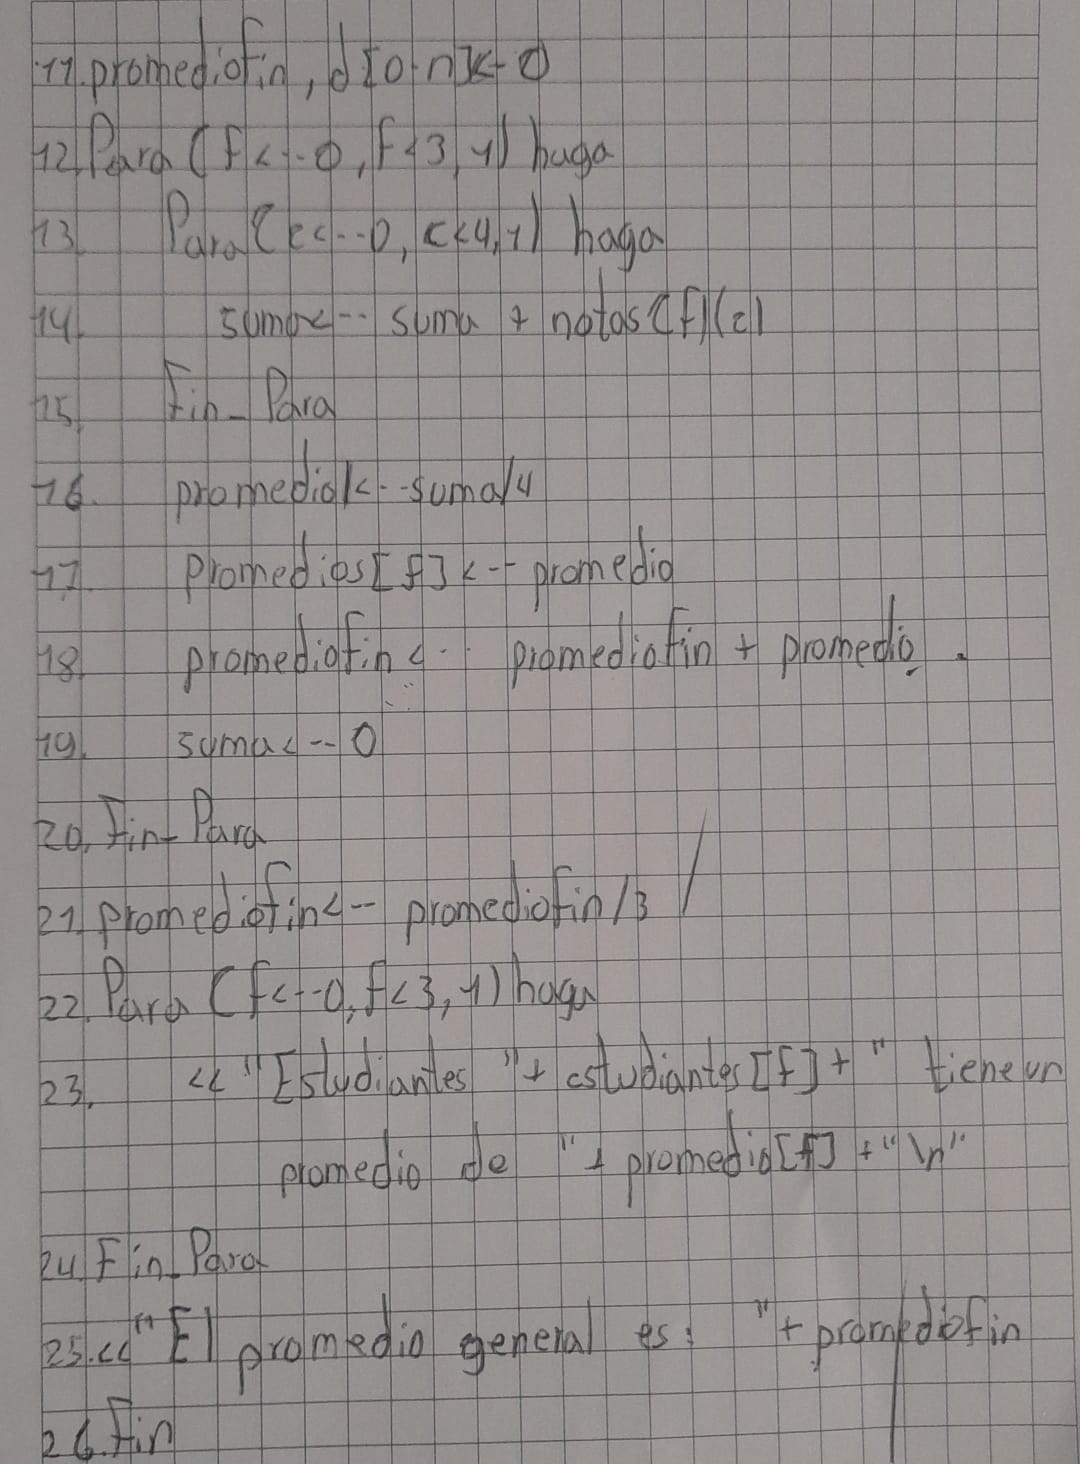 11. promediofin, d[0-n]<-0
12. Para (f<--0, f<3, 1) haga
13. Para (c<--0, c<4, 1) haga
14. suma<-- suma + notas(f)(c)
15. Fin_Para
16. promedio<--suma/4
17. promedios[f]<-- promedio
18. promediofin<-- promediofin + promedio.
19. suma<--0
20. Fin_Para
21. promediofin<-- promediofin/3
22. Para (f<--0, f<3, 1) haga
23. << "Estudiantes "+ estudiantes[f]+" tiene un
promedio de "+ promedio[f] +"\n"
24. Fin_Para
25. <<"El promedio general es: "+ promediofin
26. Fin